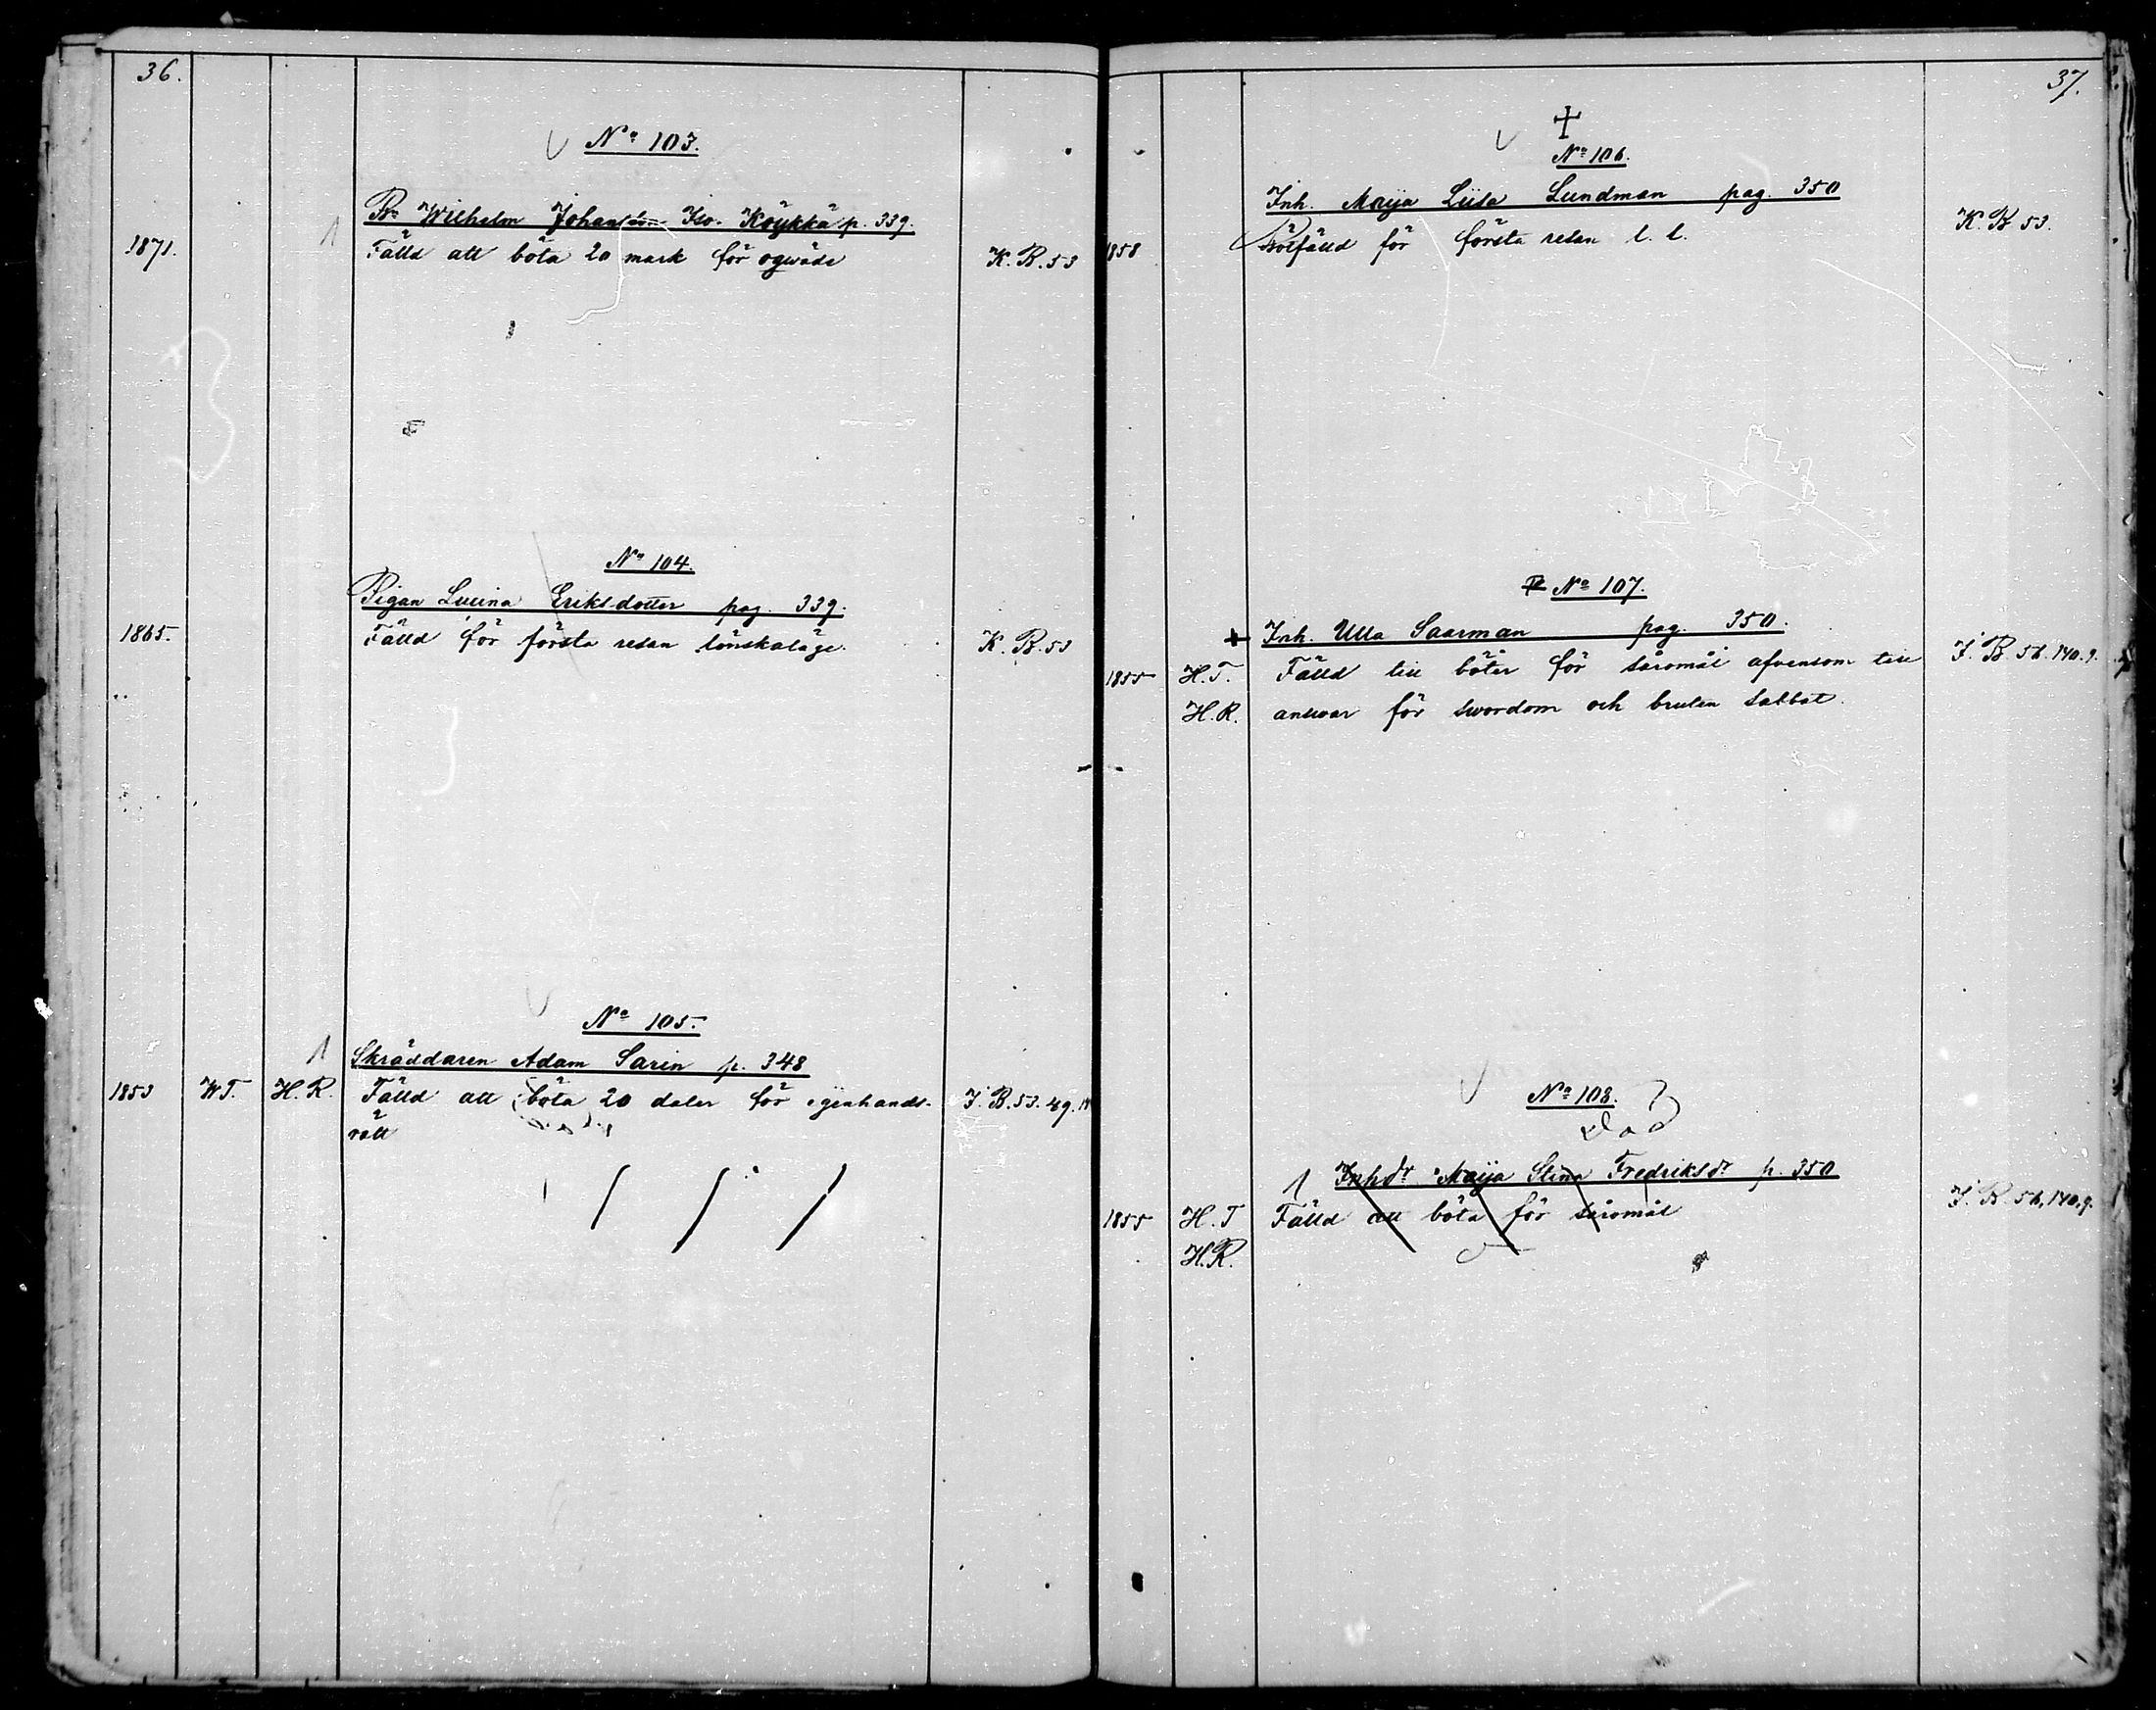 36.
No 103.
Bn Wilhelm Johansson Iso-Köykkä p. 339.
1871. Fälld att böta 20 mark för ogwäde K. B. 53
No 104.
Pigan Lucina Eriksdotter pag. 339.
1865. Fälld för första resan lönskaläge. K. B. 53
No 105.
Skräddaren Adam Sarin p. 348
1853 W T. H. R. Fälld att böta 20 daler för egenhands- J. B. 53. 49.
rätt
37.
No 106.
Inh. Maija Liisa Lundman pag. 350
1858 Botfälld för första resan l. l. K. B 53.
No 107.
Inh. Ulla Saarman pag. 350.
1855 H. T. Fälld till böter för såromål äfvensom till J. B. 56. 140. 9.
H. R. answar för swordom och bruten sabbat.
No 108.
död
Inhdr Maija Stina Fredriksdr p. 350
1855 H. T Fälld att böta för såromål J. B. 56, 140. 9.
H. R.